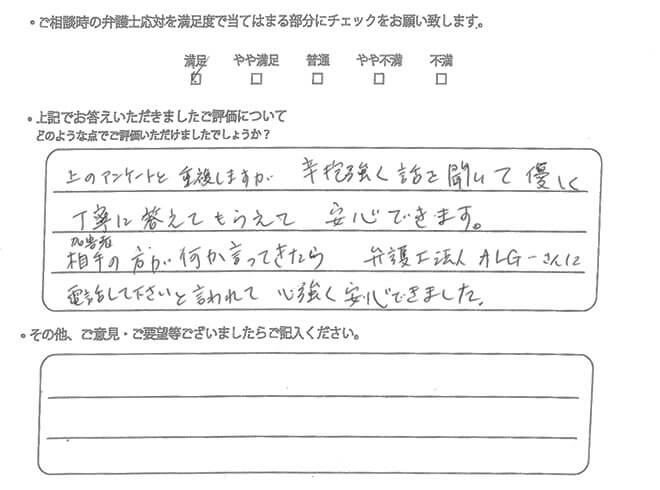 。ご相談時の弁護士応対を満足度で当てはまる部分にチェックをお願い致します。
満足 やや満足 普通 やや不満 不満
。上記でお答えいただきましたご評価について
どのような点でご評価いただけましたでしょうか？
上のアンケートと重複しますが 辛抱強く話を聞いて優しく
丁寧に答えてもらえて 安心できます。
加害者
相手の方が何か言ってきたら 弁護士法人ALGーさんに
電話して下さいと言われて 心強く安心できました。
。その他、ご意見・ご要望等ございましたらご記入ください。